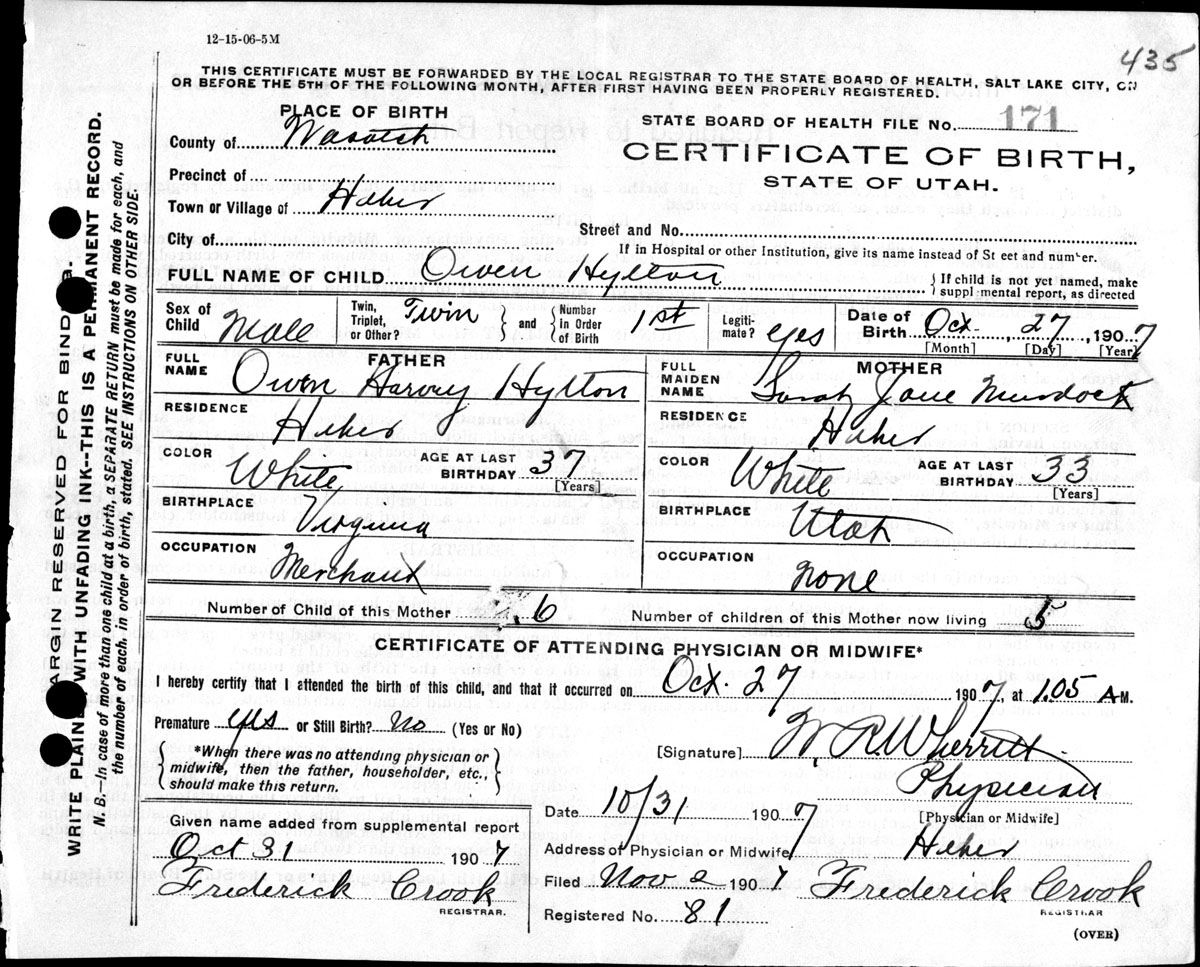 12-15-06-5M
435
THIS CERTIFICATE MUST BE FORWARDED BY THE LOCAL REGISTRAR TO THE STATE BOARD OF HEALTH, SALT LAKE CITY, ON
OR BEFORE THE 5TH OF THE FOLLOWING MONTH, AFTER FIRST HAVING BEEN PROPERLY REGISTERED.
PLACE OF BIRTH
STATE BOARD OF HEALTH FILE No. 171
County of Wasatch
CERTIFICATE OF BIRTH,
STATE OF UTAH.
Precinct of
Town or Village of Heber
Street and No.
City of
If in Hospital or other Institution, give its name instead of St eet and number.
FULL NAME OF CHILD Owen Hylton
If child is not yet named, make
suppl mental report, as directed
Sex of Child Male Twin, Triplet, or Other? Twin and Number in Order of Birth 1st Legiti-mate? yes Date of Birth Oct. 27, 1907
[Month] [Day] [Year]
FULL NAME FATHER Owen Harvey Hylton
FULL MAIDEN NAME MOTHER Sarah Jane Murdock
RESIDENCE Heber
RESIDENCE Heber
COLOR White AGE AT LAST BIRTHDAY 37 [Years]
COLOR White AGE AT LAST BIRTHDAY 33 [Years]
BIRTHPLACE Virginia
BIRTHPLACE Utah
OCCUPATION Merchant
OCCUPATION none
Number of Child of this Mother 6 Number of children of this Mother now living 5
CERTIFICATE OF ATTENDING PHYSICIAN OR MIDWIFE*
I hereby certify that I attended the birth of this child, and that it occurred on Oct. 27 1907, at 1.05 A M.
Premature yes or Still Birth? No (Yes or No)
[Signature] W R Wherritt
*When there was no attending physician or
midwife, then the father, householder, etc.,
should make this return.
Physician
[Physician or Midwife]
Date 10/31 1907
Address of Physician or Midwife Heber
Given name added from supplemental report
Oct 31 1907
Frederick Crook
REGISTRAR.
Filed Nov 2 1907 Frederick Crook
REGISTRAR
Registered No. 81
(OVER)
MARGIN RESERVED FOR BINDING
WRITE PLAINLY WITH UNFADING INK--THIS IS A PERMANENT RECORD.
N. B.—In case of more than one child at a birth, a SEPARATE RETURN must be made for each, and
the number of each, in order of birth, stated. SEE INSTRUCTIONS ON OTHER SIDE.